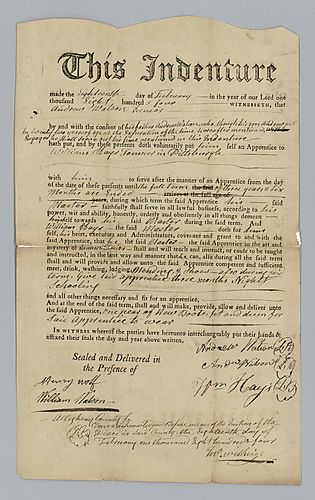 This Indenture
made the Eighteenth day of February in the year of our Lord one
thousand Eight hundred & four WITNESSETH, that
Andrew Watson Junior
by and with the consent of his father Andrew Watson, who, though his son did not will
be twenty two years on at the Expiration of the time hereafter mentioned,
hath put, and by these presents doth voluntarily put himself an Apprentice to
William Hays Tanner in Pittsburgh
with him to serve after the manner of an Apprentice from the day
of the date of these presents until the full term of three years six
Months are Ended
years, during which term the said Apprentice his said
Master faithfully shall serve in all lawful business, according to his
power, wit and ability, honestly, orderly and obediently in all things demean
himself towards his said Master during the said term. And
William Hays the said Master doth for him
self, his heirs, executors and Administrators, covenant and grant to and with the
said Apprentice, that he the said Master the said Apprentice in the art and
mystery of shall and will teach and instruct, or cause to be taught
and instructed, in the best way and manner that he can, also during all the said term
shall and will provide and allow unto the said Apprentice competent and sufficient
meat, drink, washing, lodging Mending & Shoes also during said
term give said apprentice three months Night
Schooling
and all other things necessary and fit for an apprentice,
And at the end of the said term, shall and will make, provide, allow and deliver unto
the said Apprentice, one pear of New Boots fit and deem for
said apprentice to wear
IN WITNESS whereof the parties have hereunto interchangeably put their hands &
affixed their seals the day and year above written,
Andrew Watson
Sealed and Delivered
in the Presence of
Andw Watson
Wm Hays
Henry
William Watson
Allegheny County Ss
Done and acknowledged Before me one of the Justices of the
Peace in said County the Eighteenth day of
February one thousand Eight hundred & four